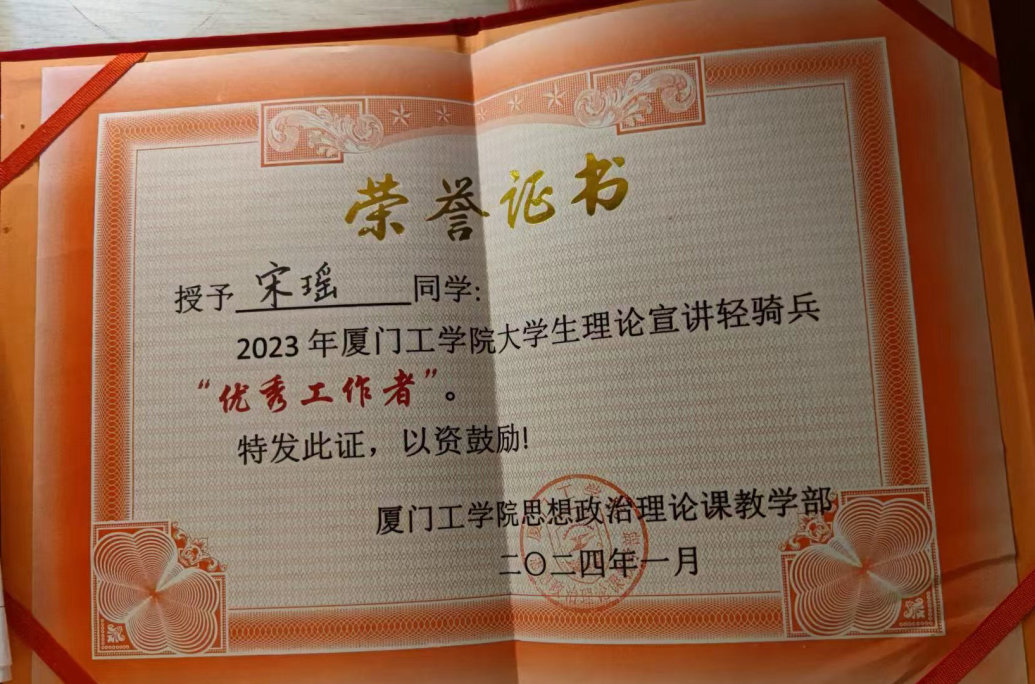 荣誉证书
授予 宋瑶 同学:
2023 年厦门工学院大学生理论宣讲轻骑兵
“优秀工作者”。
特发此证，以资鼓励!
厦门工学院思想政治理论课教学部
二〇二四年一月